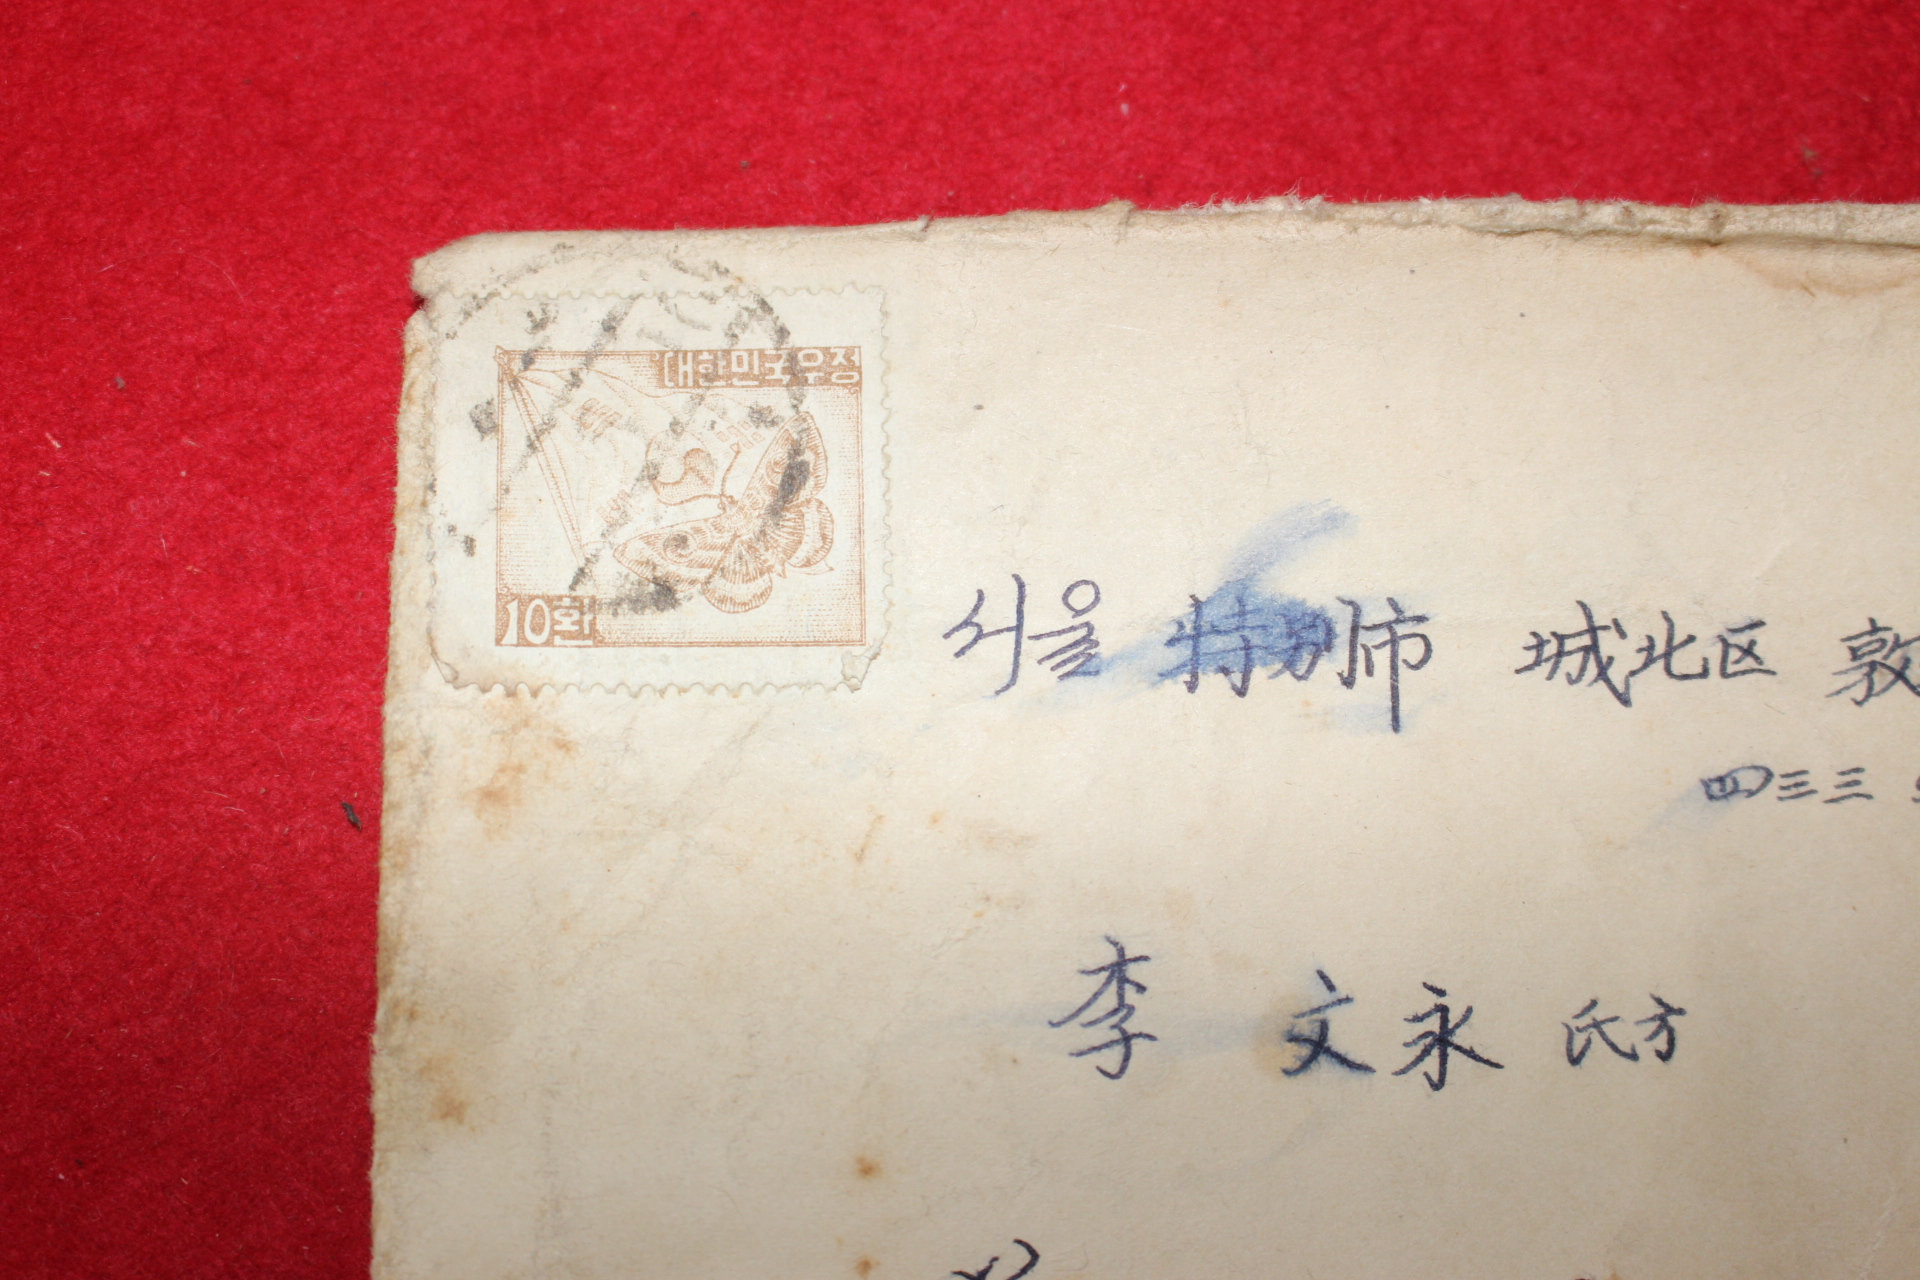 대한민국우정
10환
서울 特別市 城北区 敦
四三三
李 文永 氏方